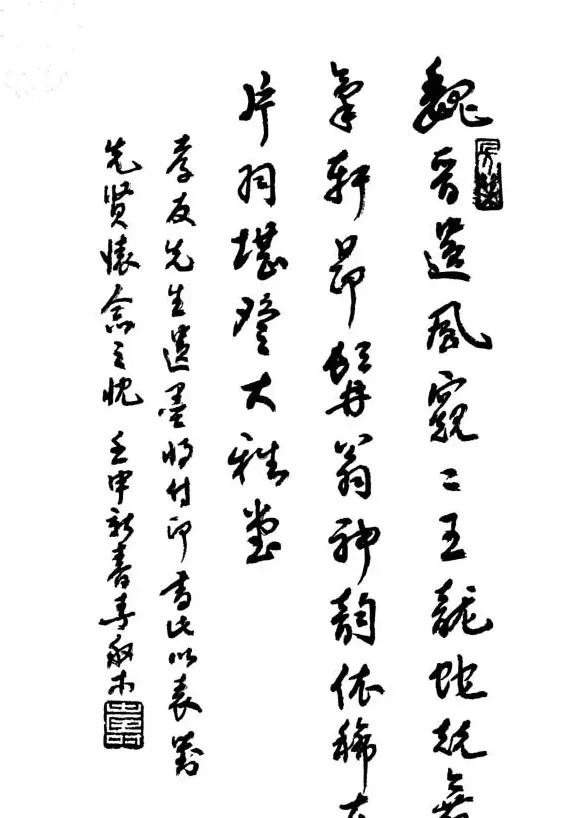 魏晋遺風窺二王龍蛇競舞
氣軒昂髯翁神韵依稀在
片羽堪登大雅堂
孝友先生遺墨將付印書此以表對
先賢懷念之忱 壬申新春